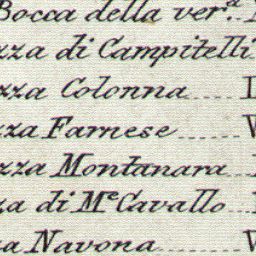 Bocca della ver.ª
zza di Campitelli
zza Colonna
zza Farnese
zza Montanara
za di M.e Cavallo
a Navona